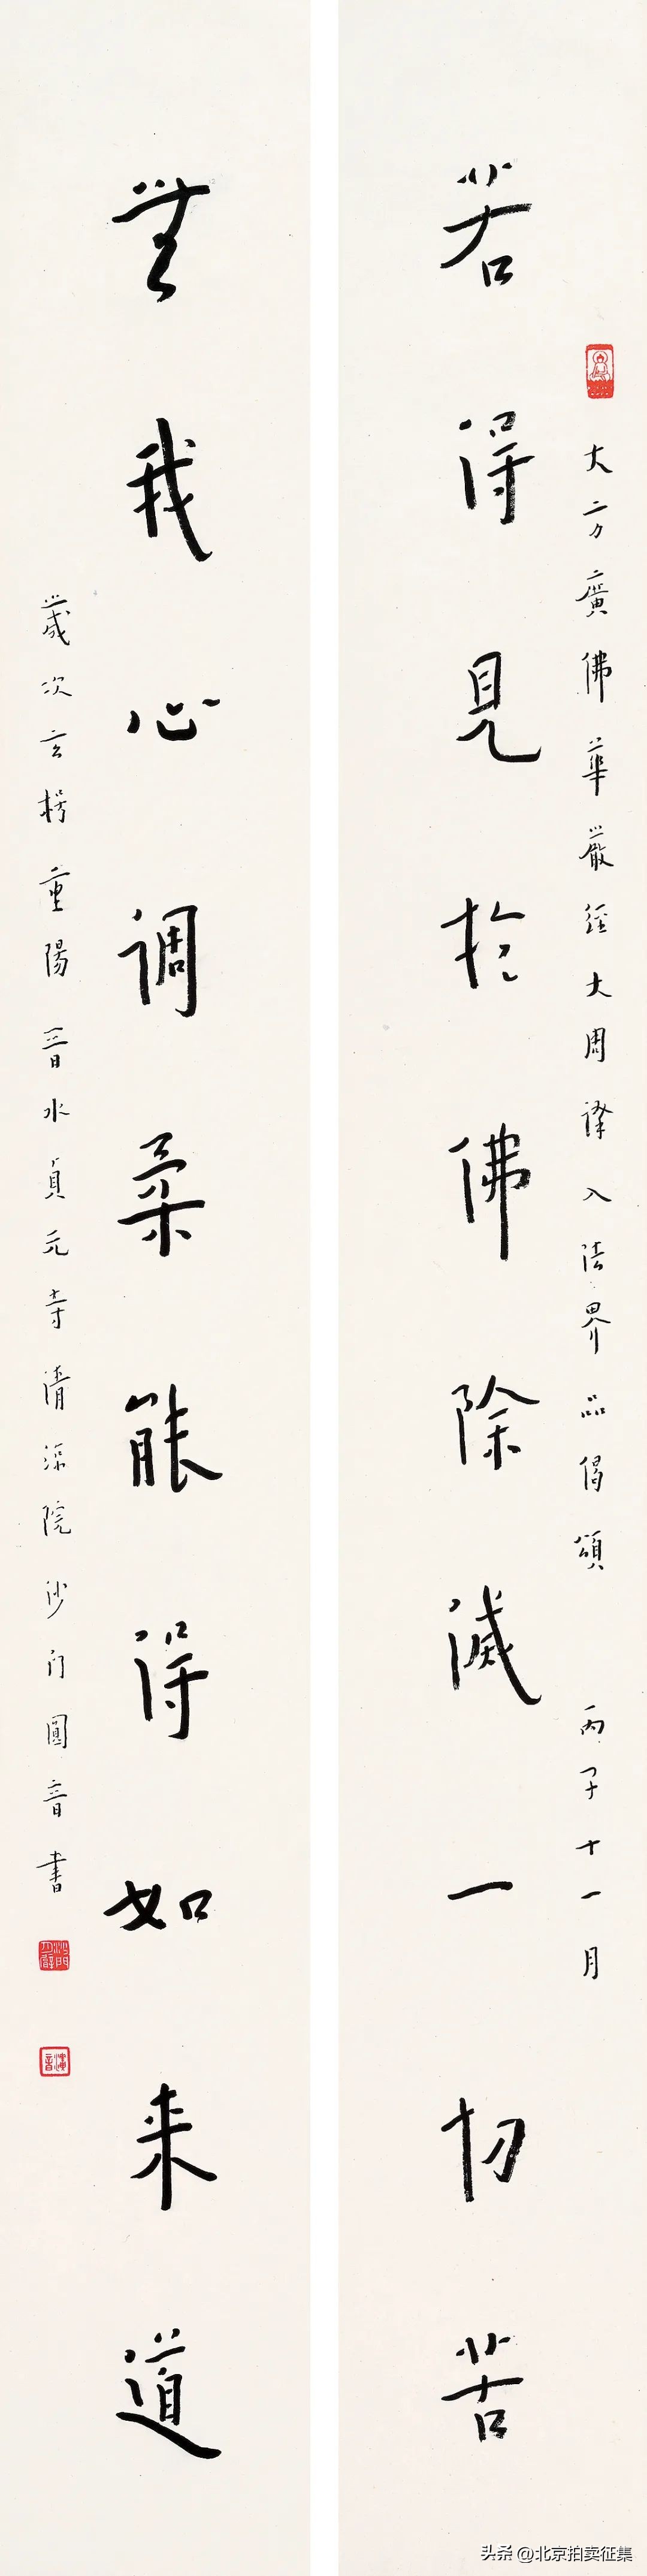 大方廣佛華嚴經大周譯入法界品偈頌 丙子十一月
若得見於佛除滅一切苦
無我心調柔能得如來道
歲次玄枵重陽晉水貞元寺清涼院沙門圓音書
头条 @北京拍卖征集